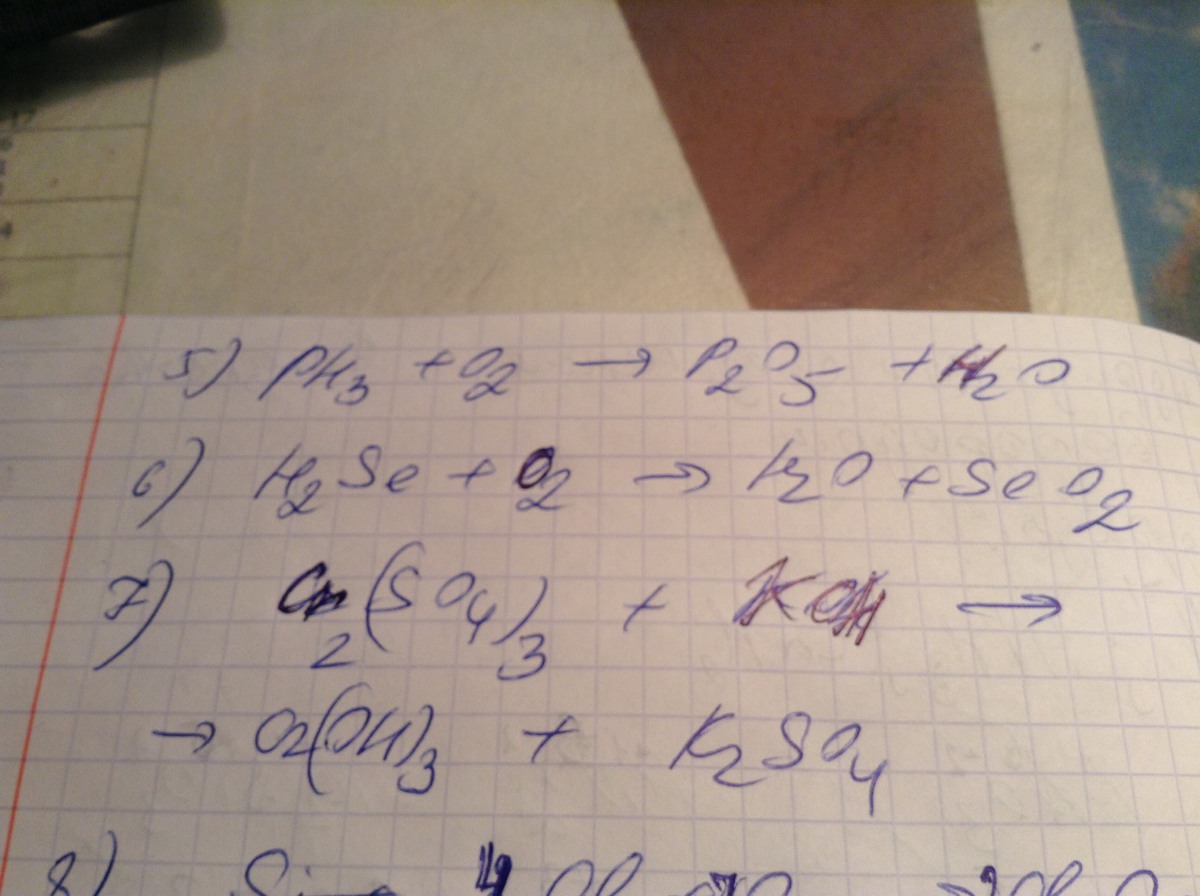 5) PH₃ + O₂ → P₂O₅ + H₂O
6) H₂Se + O₂ → H₂O + SeO₂
7) Cr₂(SO₄)₃ + KOH →
→ Cr(OH)₃ + K₂SO₄
8)